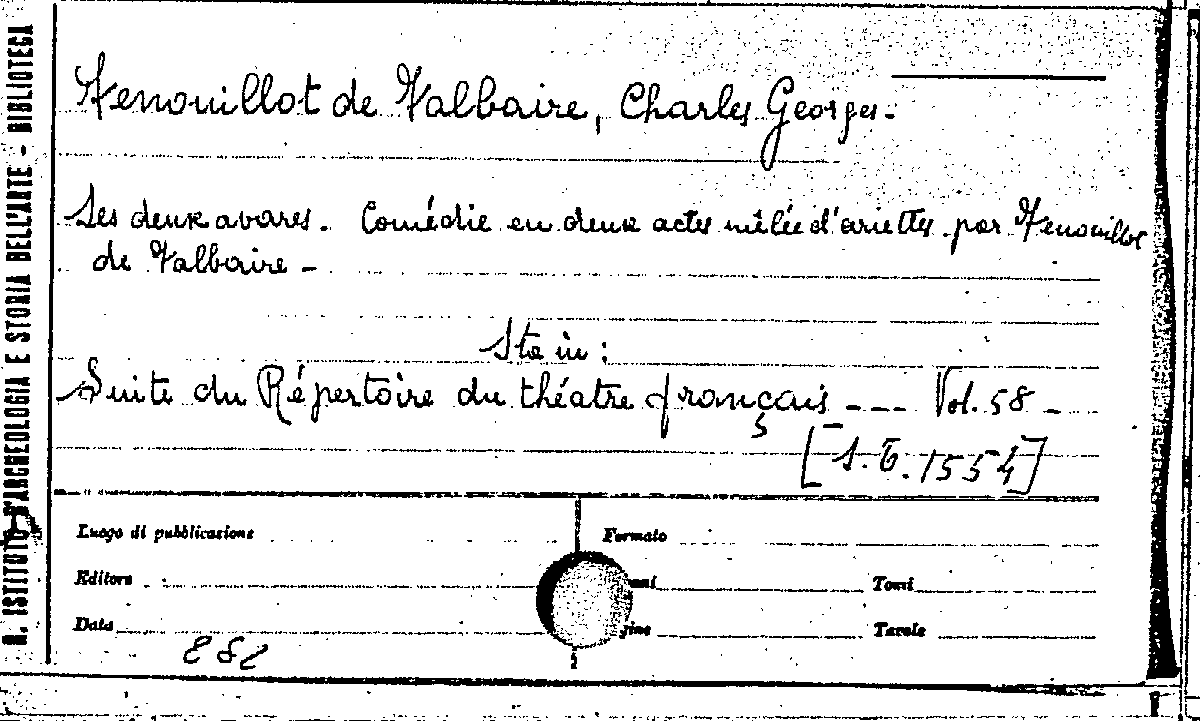 R. ISTITUTO D'ARCHEOLOGIA E STORIA DELL'ARTE - BIBLIOTECA
Fenouillot de Falbaire, Charles Georges.
Les deux avares. Comédie en deux actes mêlée d'ariettes par Fenouillot
de Falbaire -
Sta in:
Suite du Répertoire du théatre français --- Vol. 58 -
[S.T. 1554]
Luogo di pubblicazione
Formato
Editore
Tomi
Data
Tavole
282